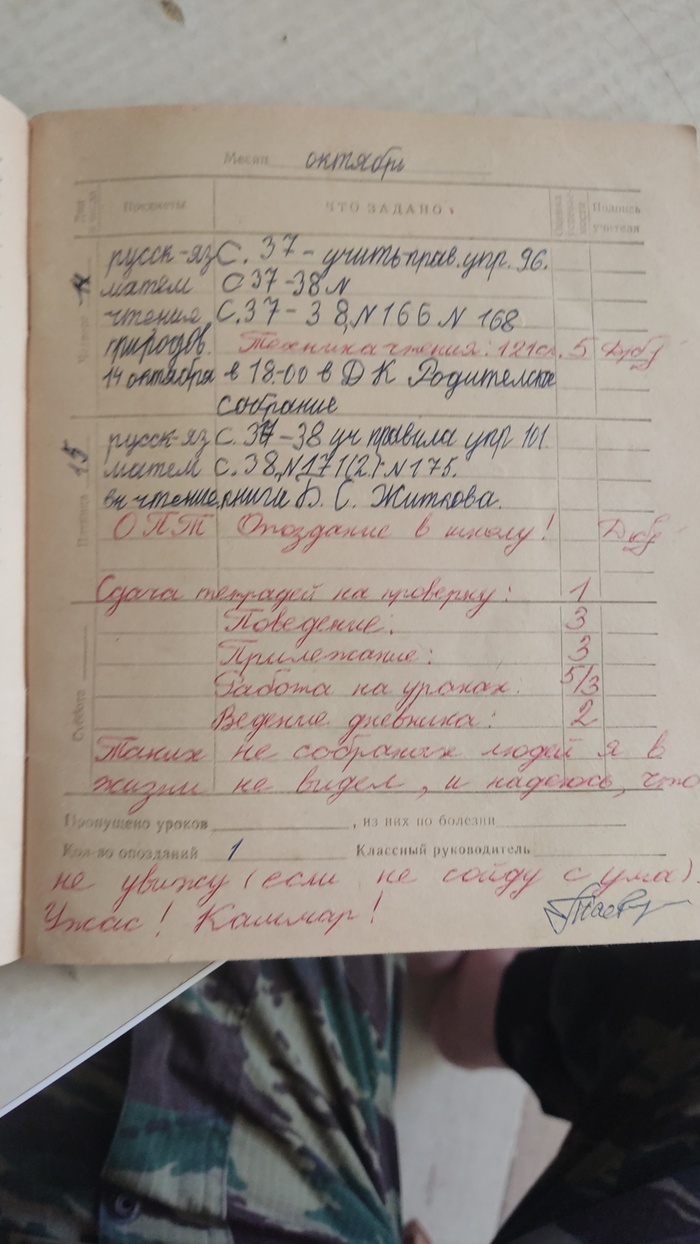 Месяц октябрь
Предметы ЧТО ЗАДАНО Подпись учителя
14 русск-яз С. 37 - учить прав. упр. 96.
матем С 37-38 N
чтение С. 37-38, N 166 N 168
природов. Техника чтения: 121сл. 5
14 октября в 18-00 в ДК Родителское
собрание
Пятница 15 русск-яз С. 37-38 уч правила упр 101.
матем С. 38, N 171(2) N 175.
вн чтение, книги Б. С. Житкова.
ОПТ Опоздание в школу!
Сдача тетрадей на проверку: 1
Поведение: 3
Прилежание: 3
Работа на уроках: 5/3
Суббота Ведение дневника: 2
Таких не собраных людей я в
жизни не видел, и надеюсь, что
Пропущено уроков , из них по болезни
Кол-во опозданий 1 Классный руководитель
не увижу (если не сойду с ума).
Ужас! Кашмар!